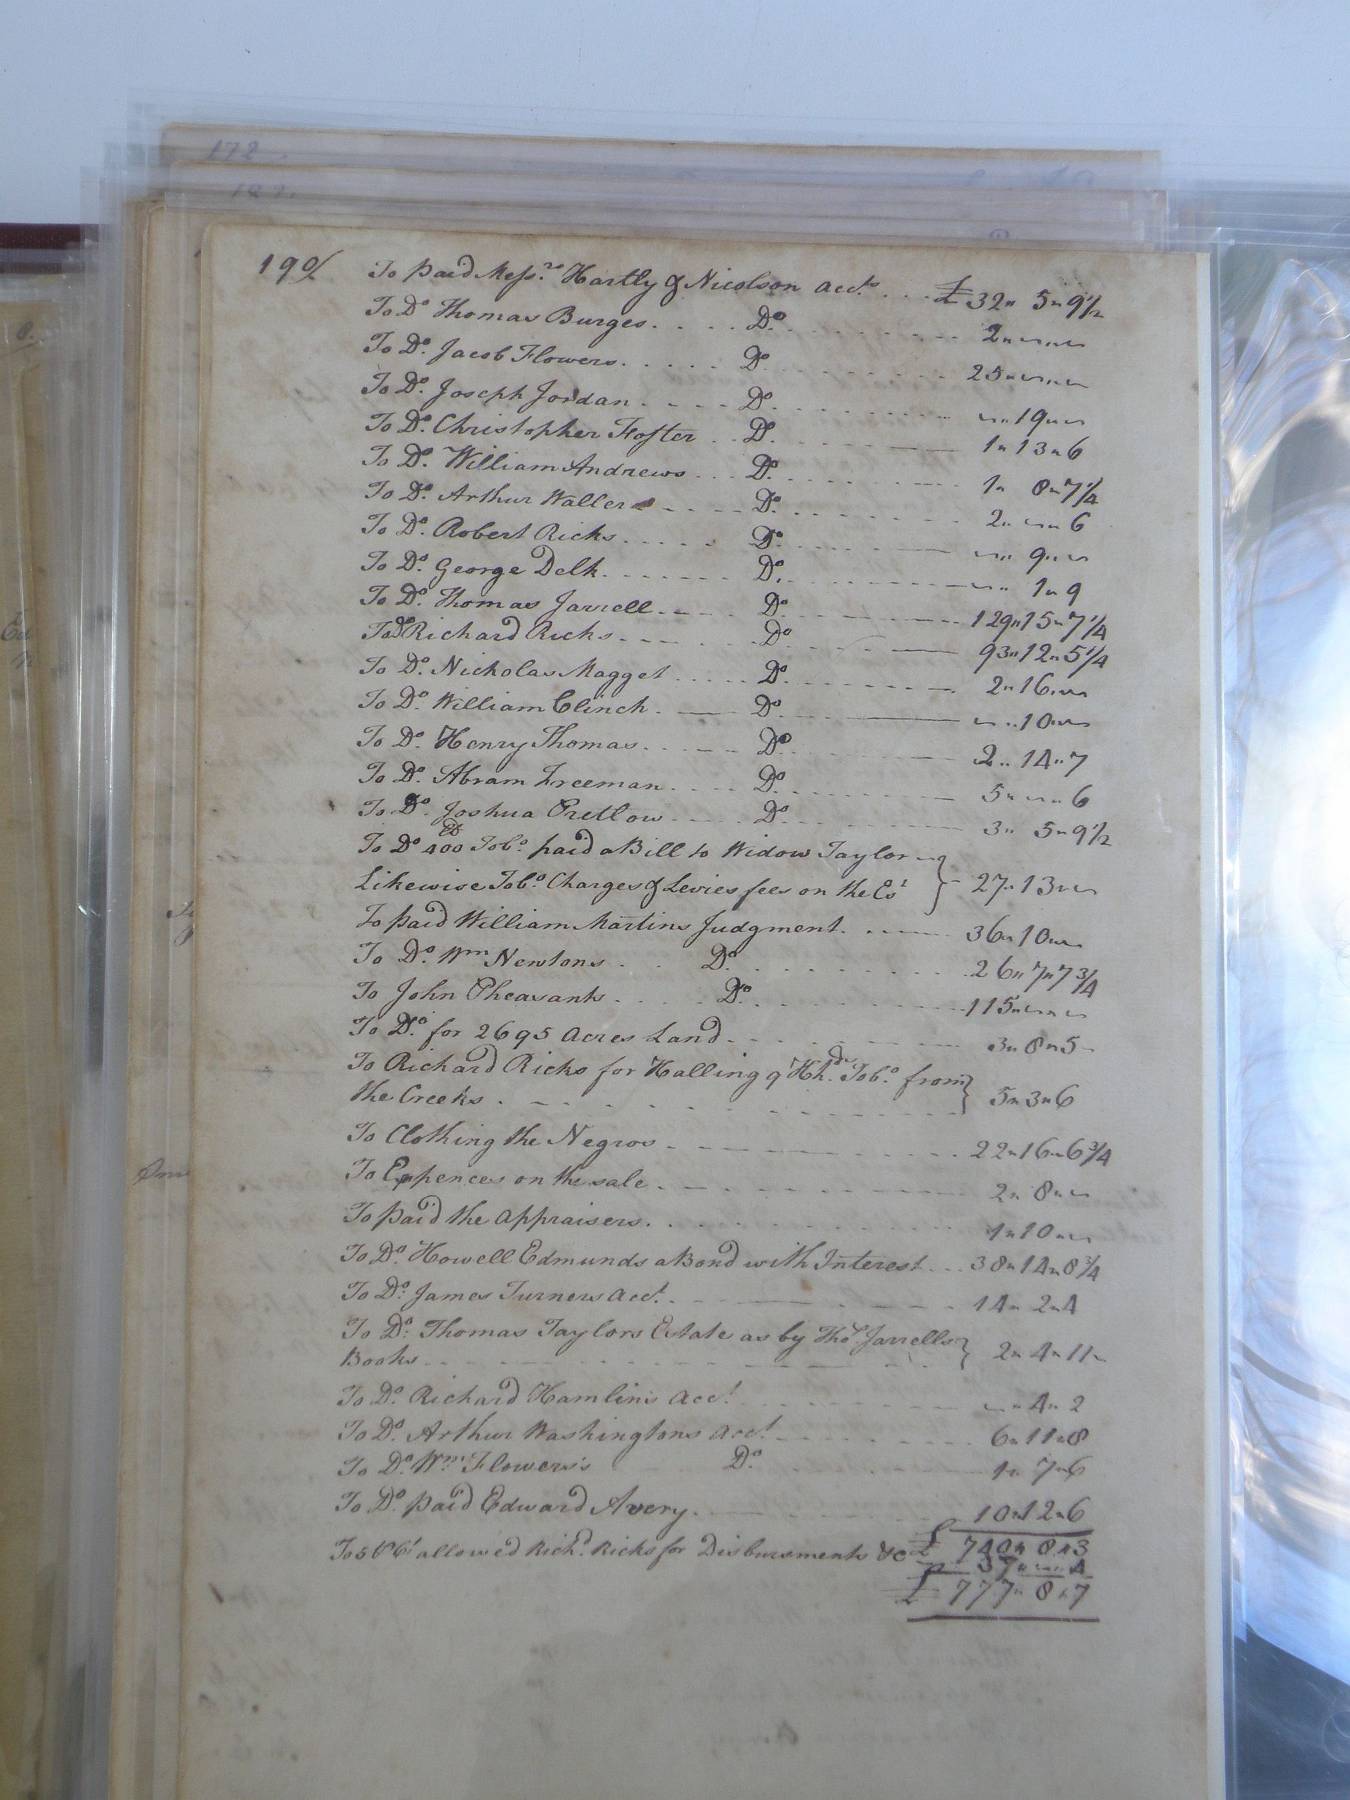 172
182.
190/ To paid Messrs. Hartly & Nicolson acct.s . . . £ 32 " 5 " 9 1/2
To Do Thomas Burges . . . . Do . . . . . 2 " — " —
To Do. Jacob Flowers . . . . . Do . . . . . 25 " — " —
To Do. Joseph Jordan . - - - Do . . . . . — " 19 " —
To Do. Christopher Foster . . Do . . . . . 1 " 13 " 6
To Do. William Andrews . . . Do . . . . . 1 " 8 " 7 1/4
To Do. Arthur Waller - - - - Do . . . . . 2 " — " 6
To Do. Robert Ricks . . . . . Do . . . . . — " 9 " —
To Do. George Delk . . . . . Do . . . . . — " 1 " 9
To Do. Thomas Jarrell . - - - Do . . . . . 129 " 15 " 7 1/4
To Do Richard Ricks . - - - Do . . . . . 93 " 12 " 5 1/4
To Do. Nicholas Magget . . . . . Do . . . . . 2 " 16 " —
To Do. William Clinch . — Do . . . . . — " 10 " —
To Do. Henry Thomas . . . - - Do . . . . . 2 " 14 " 7
To Do. Abram Freeman . . . . . Do . . . . . 5 " — " 6
To Do. Joshua Pretlow . . . . . Do . . . . . 3 " 5 " 9 1/2
To Do 400 lb Tobo. paid a Bill to Widow Taylor - }
Likewise Tobo. Charges & Levies fees on the Est } 27 " 13 " —
To paid William Martins Judgment . . — 36 " 10 " —
To Do. Wm Newtons . . Do. . . . . . . . 26 " 7 " 7 3/4
To John Pheasants . . . . Do. . . . . . . 115 " — " —
To Do. for 2695 Acres Land . . . . . . 3 " 8 " 5
To Richard Ricks for Halling 9 Hhds. Tobo. from }
the Creeks . . . . . . . . } 5 " 3 " 6
To Clothing the Negros . . . . . . . 22 " 16 " 6 3/4
To Expences on the sale . . . . . . 2 " 8 " —
To paid the appraisers . . . . . . . 1 " 10 " —
To Do. Howell Edmunds a Bond with Interest . . . 38 " 14 " 8 3/4
To Do: James Turners acct. . . . . . 14 " 2 " 4
To Do: Thomas Taylors Estate as by Thos Jarrells }
Books . . . . . . . . . } 2 " 4 " 11
To Do. Richard Hamlins Acct. . . . . — " 4 " 2
To Do. Arthur Washingtons acct. . . . . 6 " 11 " 8
To Do. Wm. Flowers's Do. . . . . 1 " 7 " 6
To Do. paid Edward Avery . . . . . . 10 " 12 " 6
£ 740 " 8 " 3
To 5 P Ct allowed Richd. Ricks for Disbursments &c 37 " — " 4
£ 777 " 8 " 7